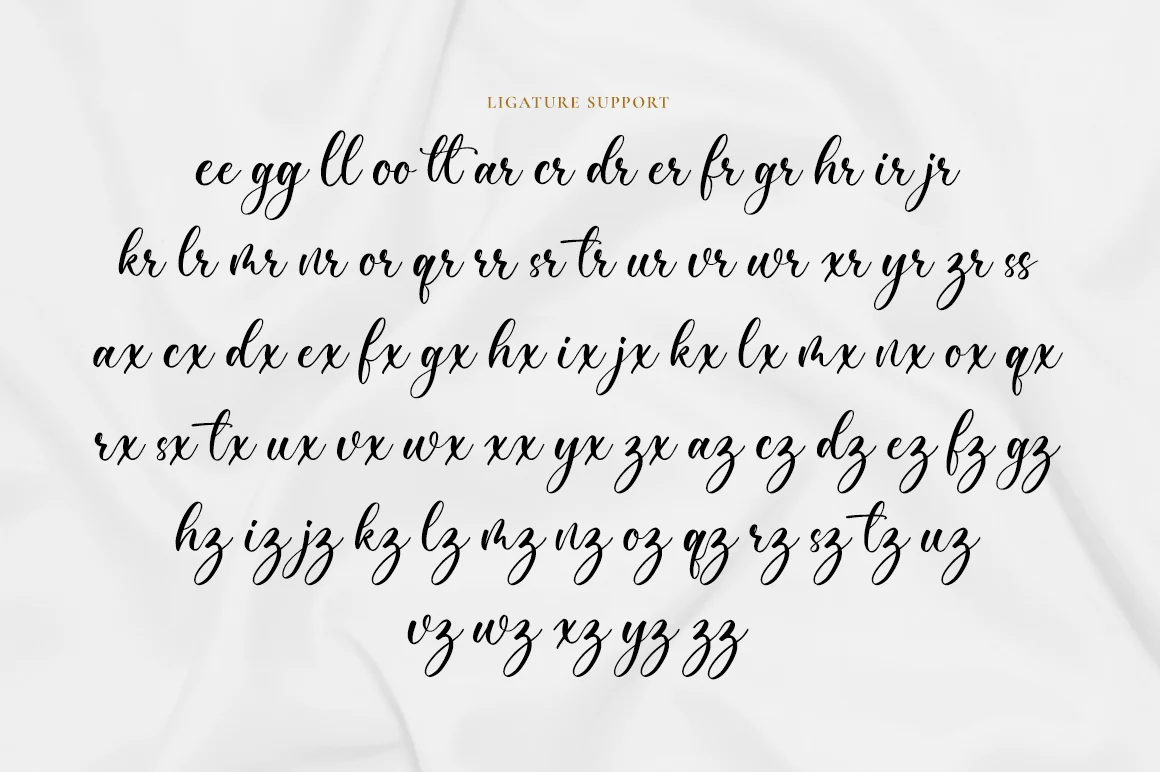 LIGATURE SUPPORT
ee gg ll oo tt ar cr dr er fr gr hr ir jr
kr lr mr nr or qr rr sr tr ur vr wr xr yr zr ss
ax cx dx ex fx gx hx ix jx kx lx mx nx ox qx
rx sx tx ux vx wx xx yx zx az cz dz ez fz gz
hz iz jz kz lz mz nz oz qz rz sz tz uz
vz wz xz yz zz